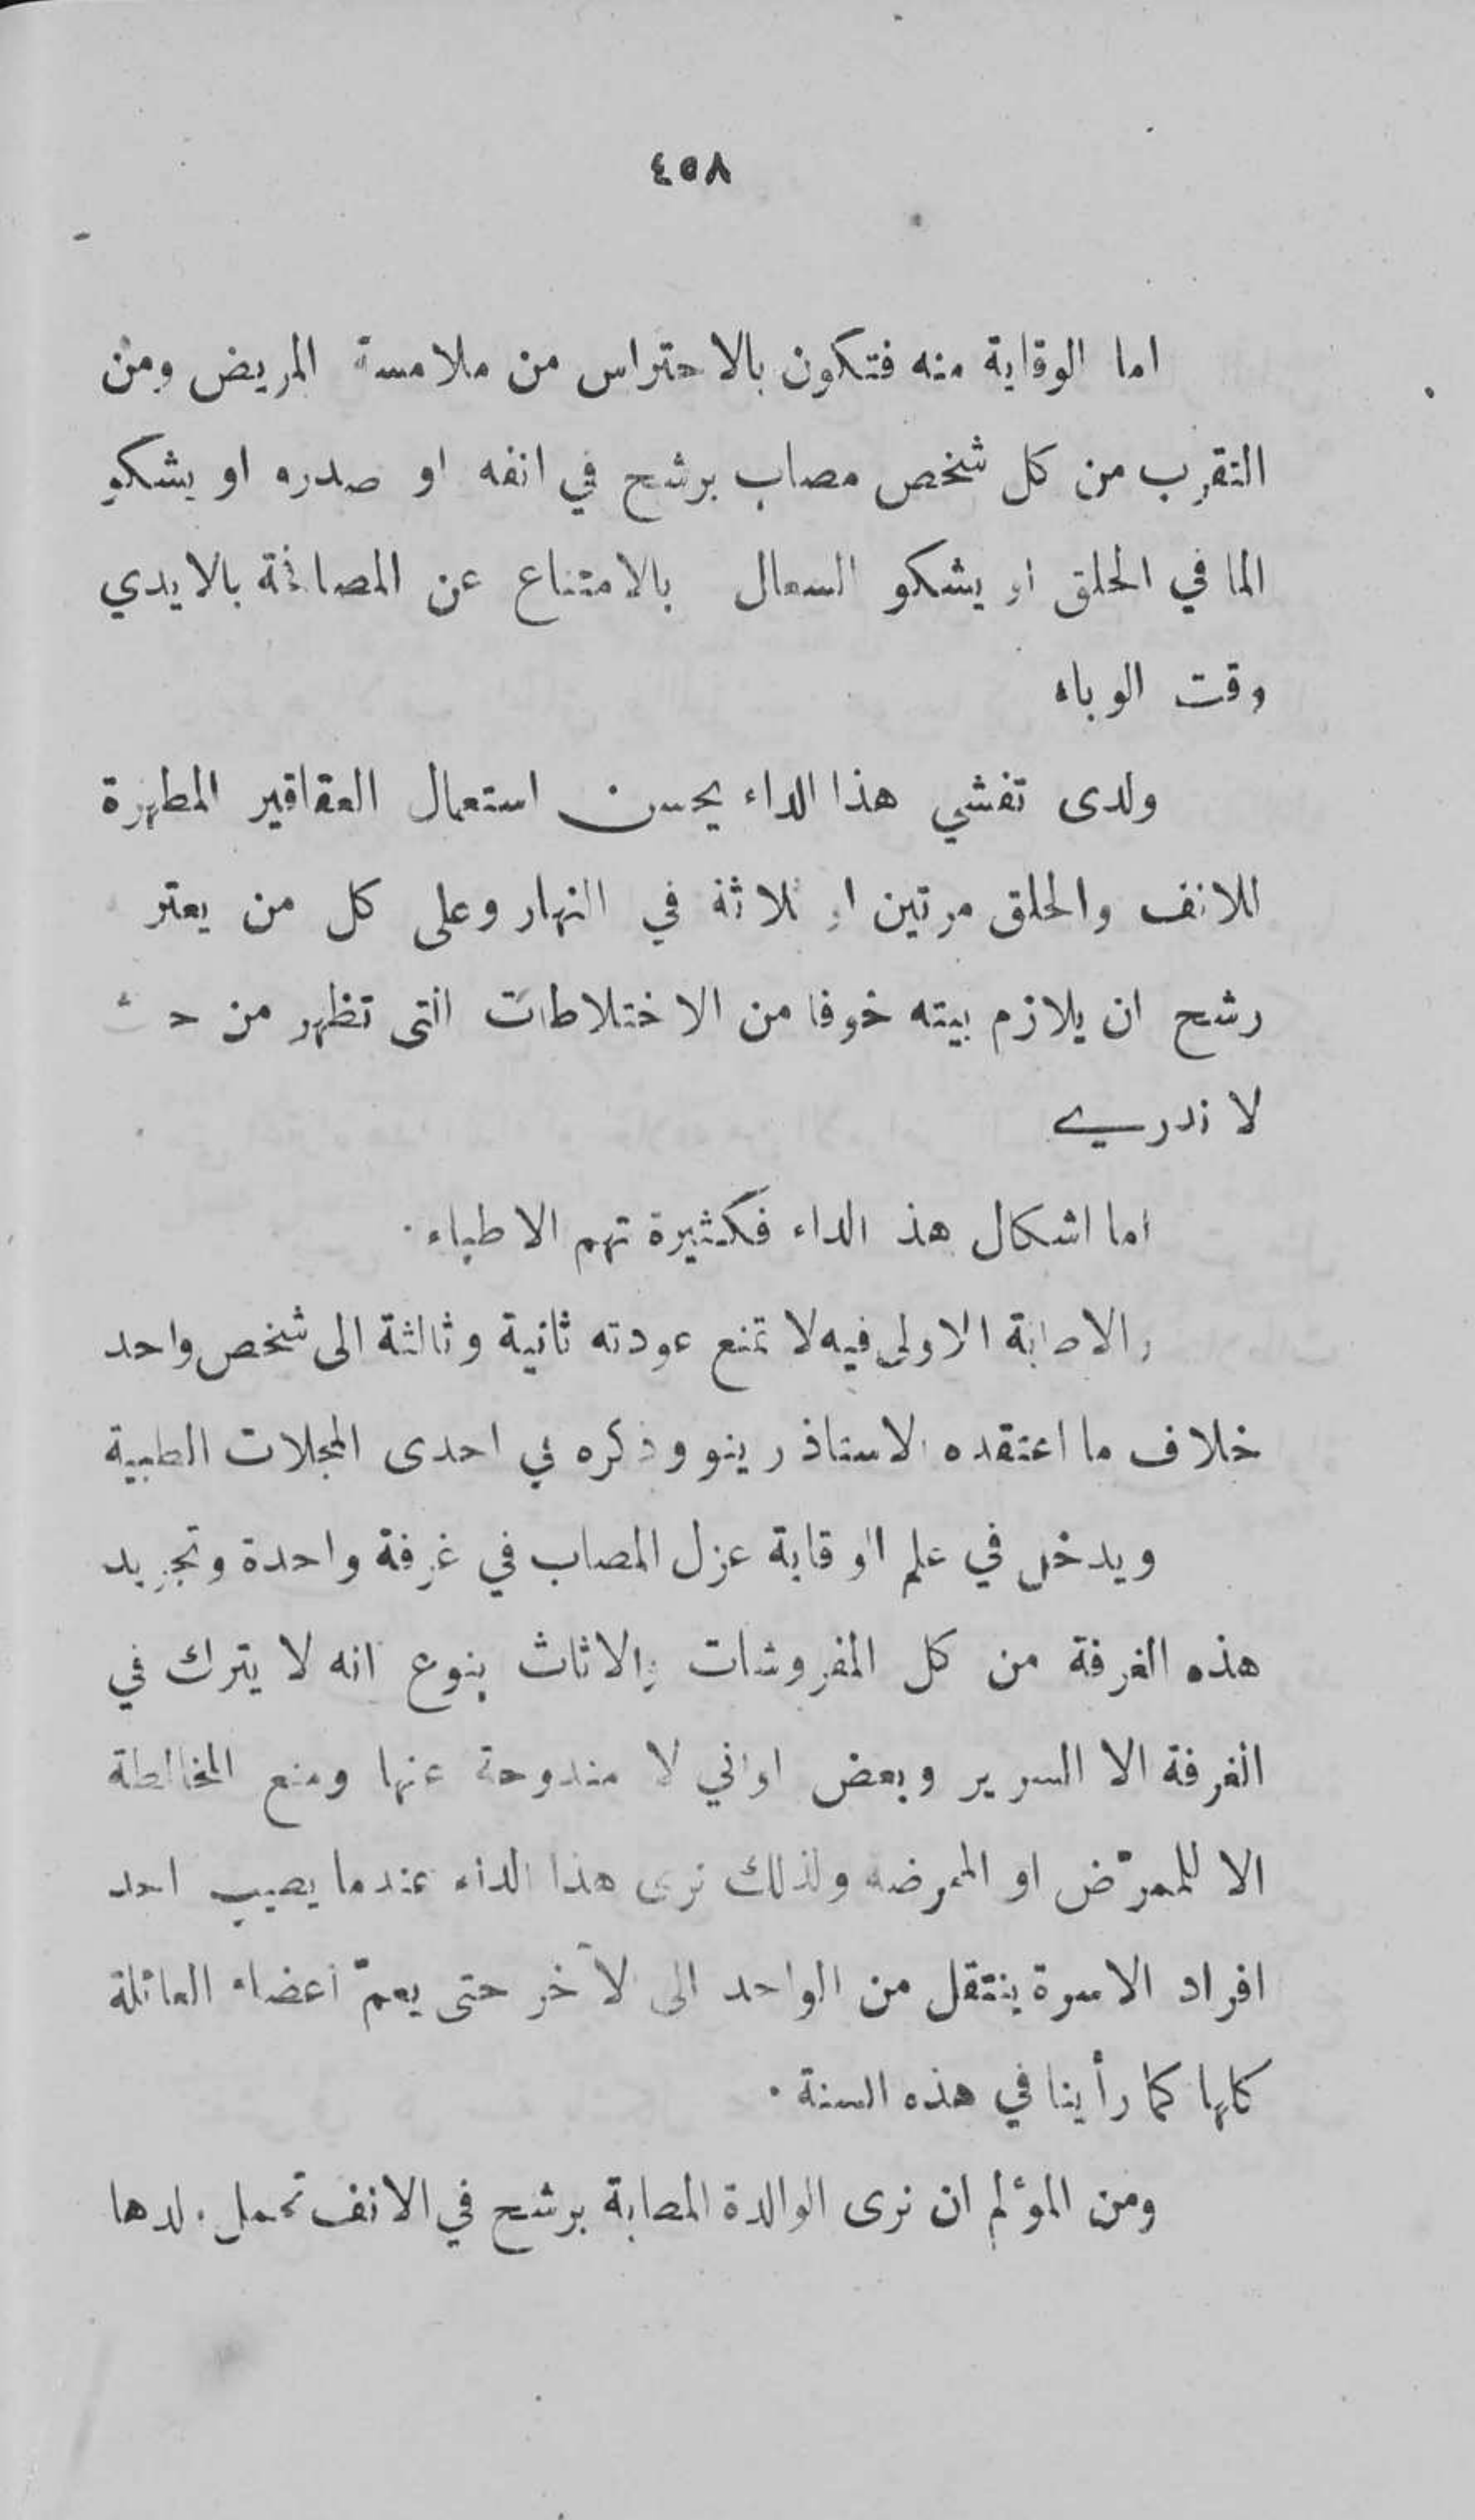 ٤٥٨
اما الوقاية منه فتكون بالاحتراس من ملامسة المريض ومن
التقرب من كل شخص مصاب برشح في انفه او صدره او يشكو
الما في الحلق او يشكو السعال بالامتناع عن المصافحة بالايدي
وقت الوباء
ولدى تفشي هذا الداء يحسن استعمال العقاقير المطهرة
للانف والحلق مرتين او ثلاثة في النهار وعلى كل من يعتر
رشح ان يلازم بيته خوفا من الاختلاطات التى تظهر من حيث
لا ندري
اما اشكال هذ الداء فكثيرة تهم الاطباء .
والاصابة الاولى فيه لا تمنع عودته ثانية وثالثة الى شخص واحد
خلاف ما اعتقده الاستاذ رينو وذكره في احدى المجلات الطبية
ويدخل في علم الوقاية عزل المصاب في غرفة واحدة وتجريد
هذه الغرفة من كل المفروشات والاثاث بنوع انه لا يترك في
الغرفة الا السرير وبعض اواني لا مندوحة عنها ومنع المخالطة
الا للممرّض او الممرضه ولذلك نرى هذا الداء عندما يصيب احد
افراد الاسرة ينتقل من الواحد الى الآخر حتى يعمّ اعضاء العائلة
كلها كما رأينا في هذه السنة .
ومن المؤلم ان نرى الوالدة المصابة برشح في الانف تحمل ولدها